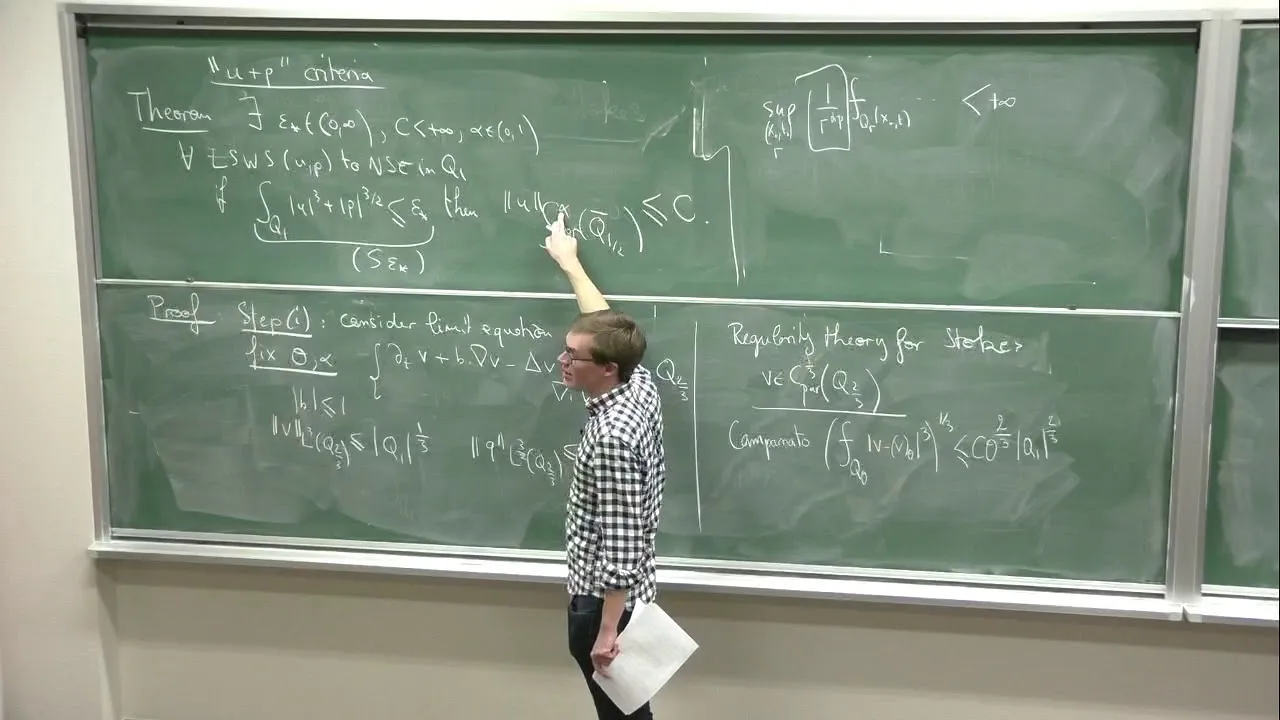 "u+p" criteria
Theorem ∃ ε* ∈ (0,∞), C<+∞, α∈(0,1)
∀ LSWS (u,p) to NSE in Q₁
if ∫_{Q₁} |u|³ + |p|^{3/2} ≤ ε* then ‖u‖_{C^α_{par}(Q̄_{1/2})} ≤ C.
(Sε*)
sup_{(x₀,t₀), r} (1/r^{αp}) ⨍_{Q_r(x₀,t)} ... < +∞
Proof Step(i): consider limit equation
fix θ, α
∂_t v + b·∇v − Δv
∇
Q_{2/3}
|b| ≤ 1
‖v‖_{L³(Q_{2/3})} ≤ |Q₁|^{1/3}
‖q‖_{L^{3/2}(Q_{2/3})} ≤
Regularity theory for Stokes
v∈ C^{1/3}_{par}(Q_{2/3})
Campanato (⨍_{Q_θ} |v−(v)_θ|³)^{1/3} ≤ Cθ^{2/3} |Q₁|^{2/3}